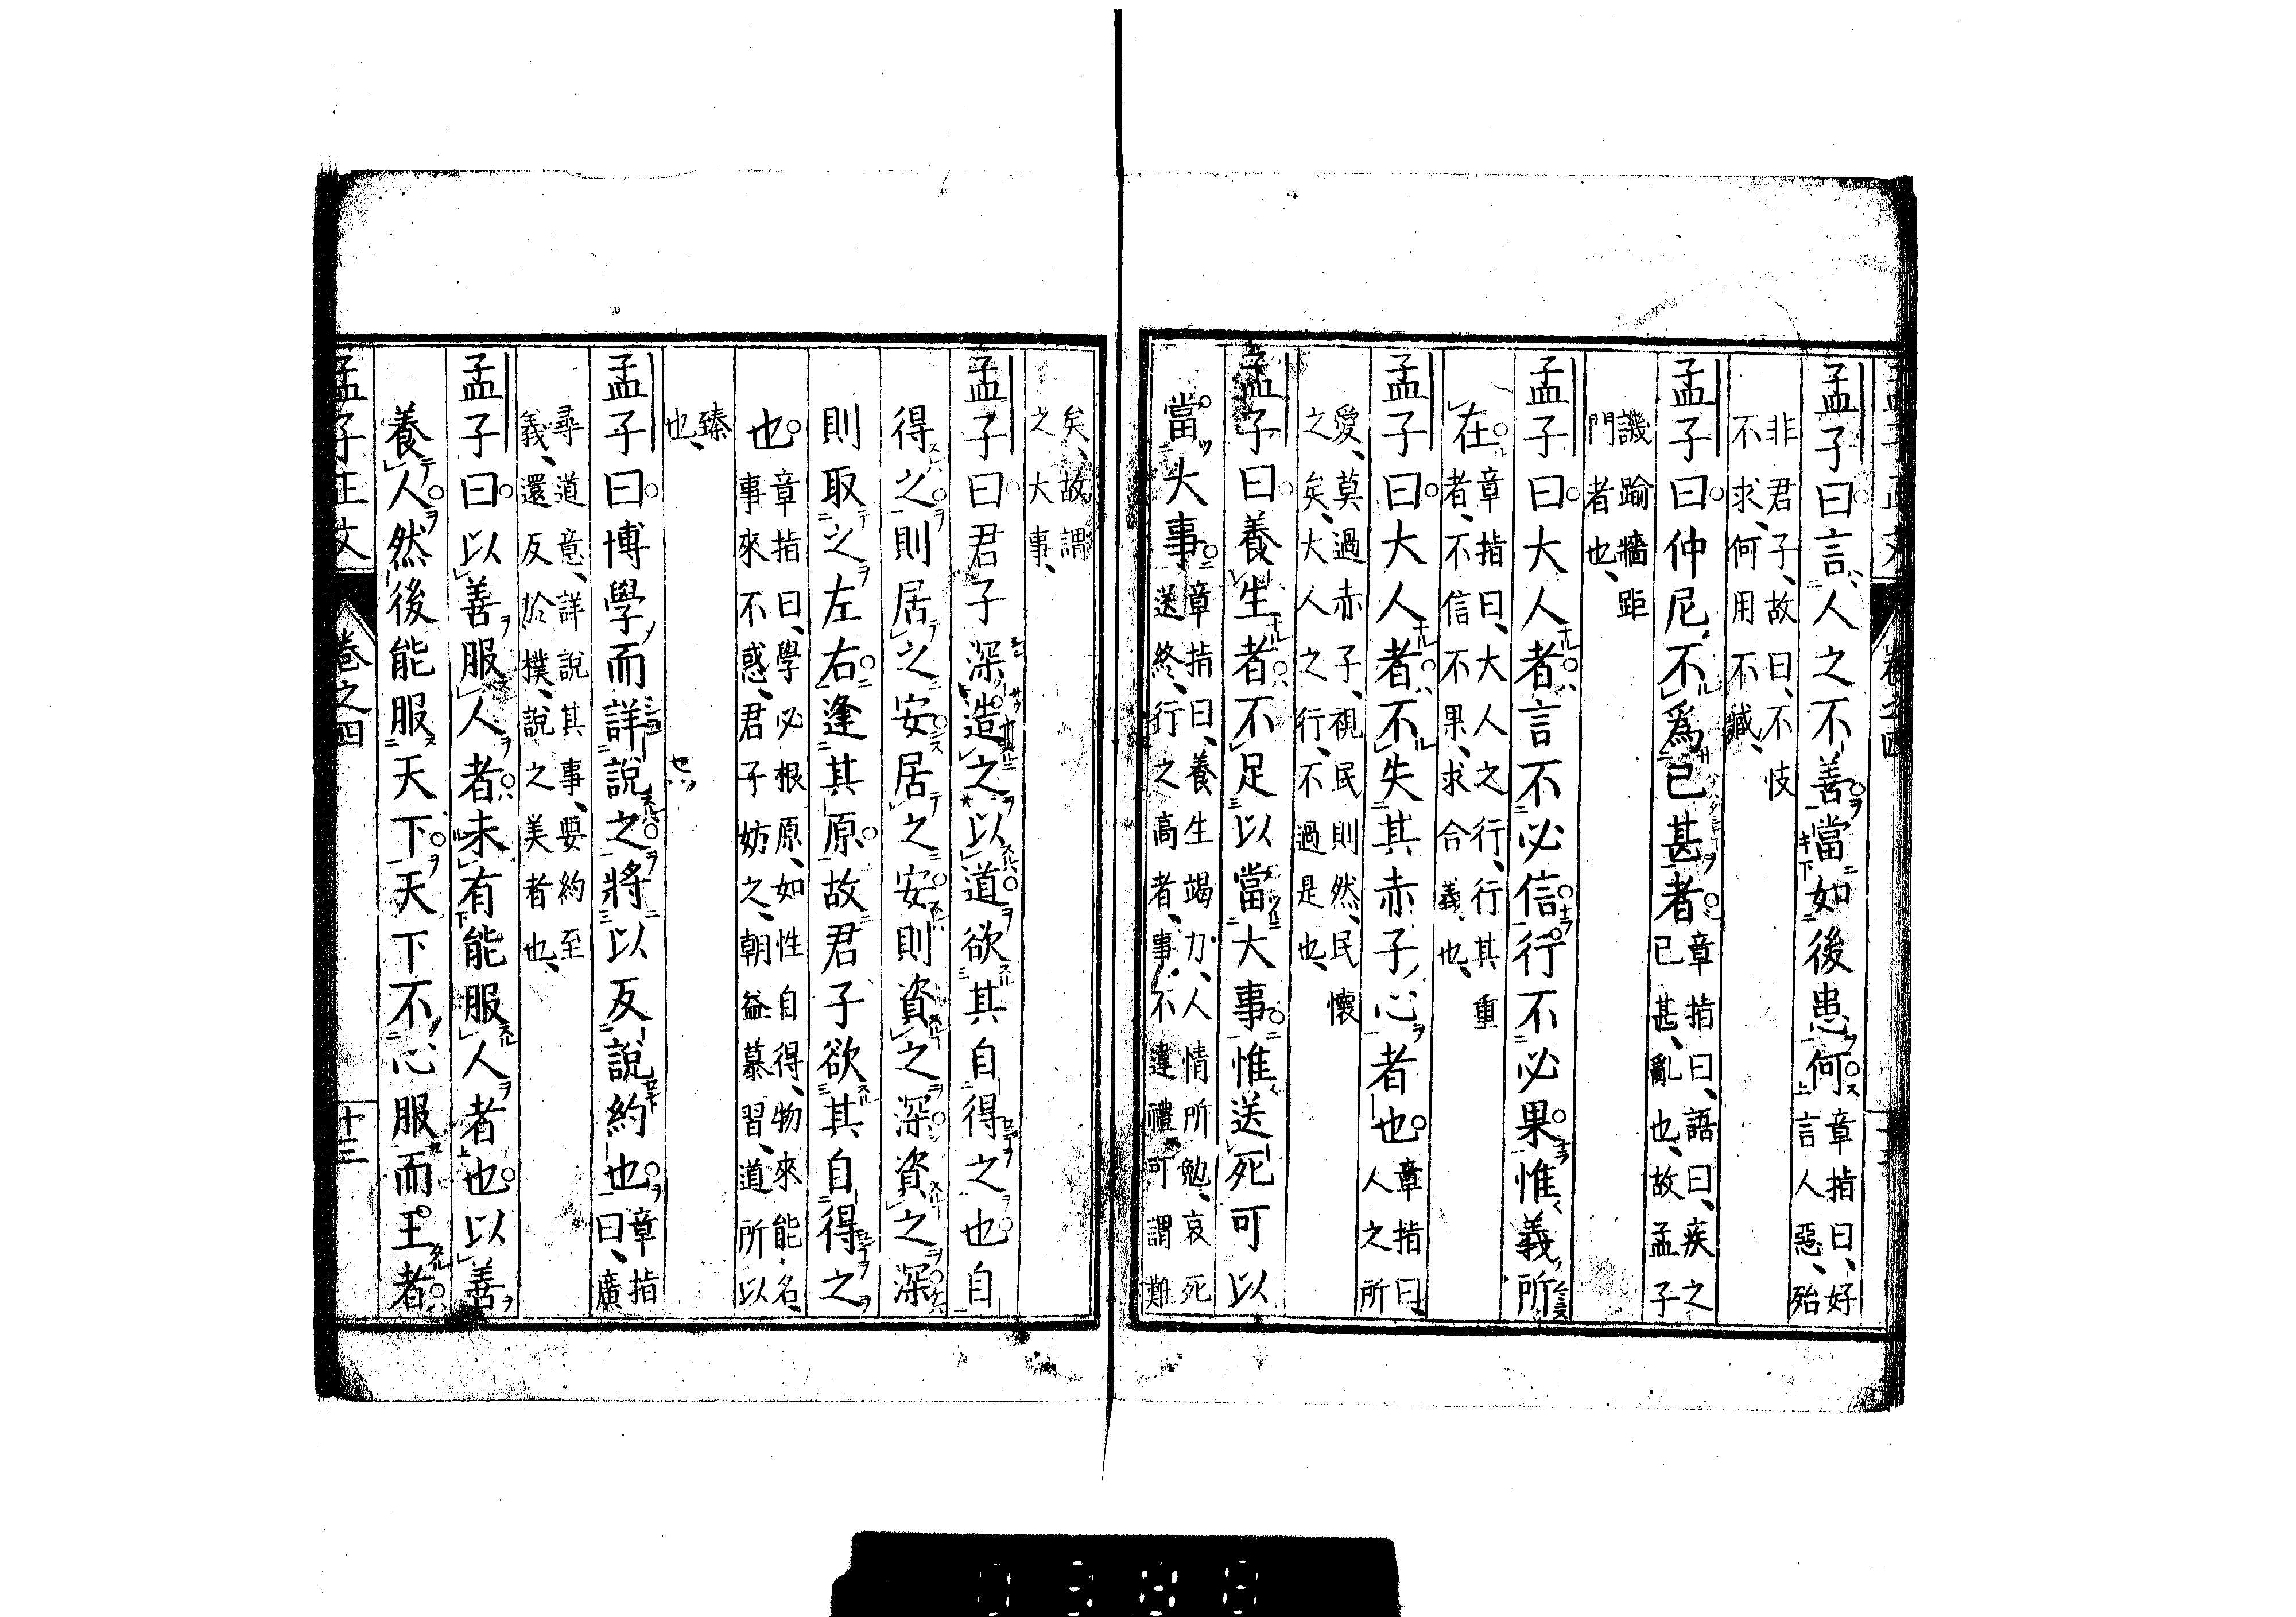 孟子曰言人之不善當如後患何章指曰好言人惡殆
非君子故曰不忮不求何用不臧
孟子曰仲尼不爲已甚者章指曰語曰疾之已甚亂也故孟子
譏踰牆距門者也
孟子曰大人者言不必信行不必果惟義所
在章指曰大人之行行其重者不信不果求合義也
孟子曰大人者不失其赤子心者也章指曰人之所
愛莫過赤子視民則然民懷之矣大人之行不過是也
孟子曰養生者不足以當大事惟送死可以
當大事章指曰養生竭力人情所勉哀死送終行之高者事不違禮可謂難
矣故謂之大事
孟子曰君子深造之以道欲其自得之也自
得之則居之安居之安則資之深資之深
則取之左右逢其原故君子欲其自得之
也章指曰學必根原如性自得物來能名事來不惑君子妨之朝益慕習道所以
臻也
孟子曰博學而詳說之將以反說約也章指曰廣
尋道意詳說其事要約至義還反於樸說之美者也
孟子曰以善服人者未有能服人者也以善
養人然後能服天下天下不心服而王者
孟子正文 卷之四 十三